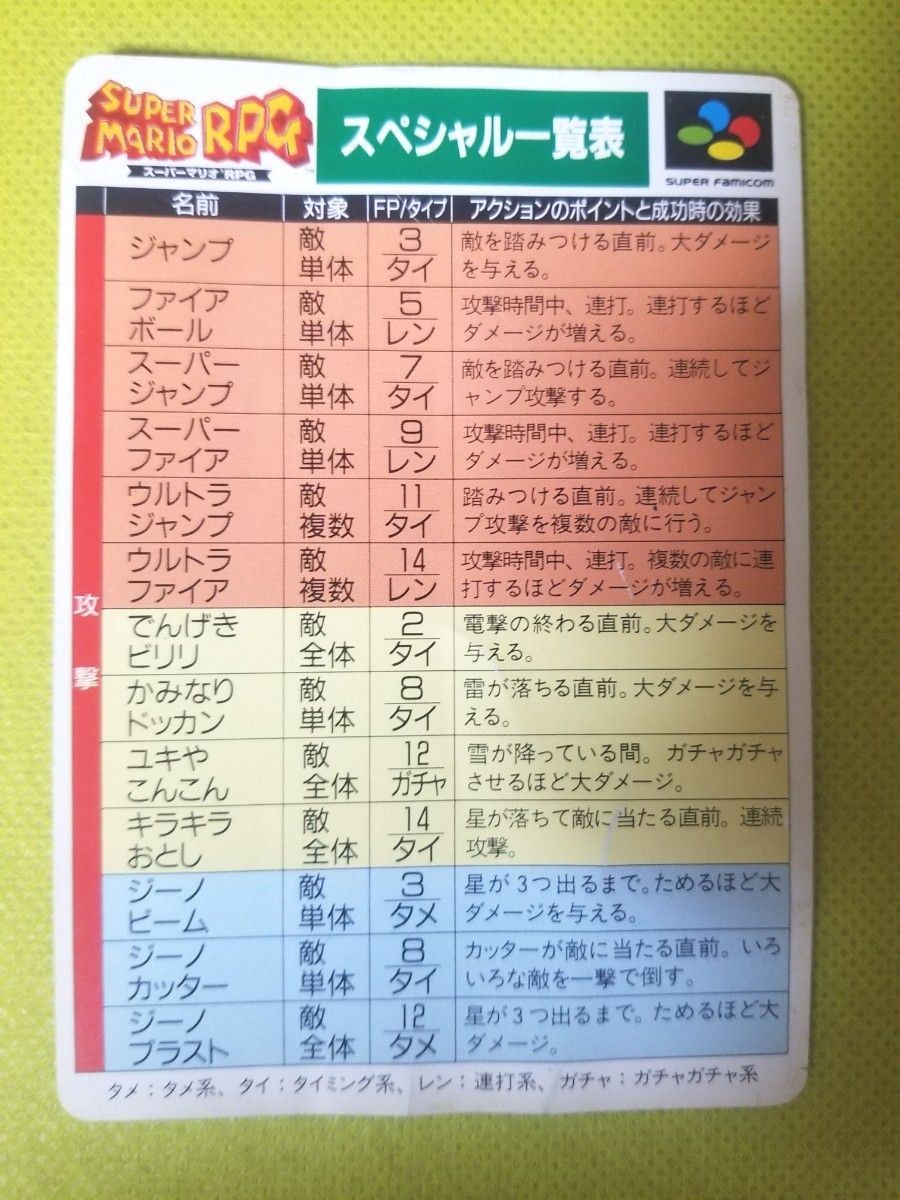 SUPER MARIO RPG
スーパーマリオRPG
スペシャル一覧表
SUPER FAMICOM
名前 対象 FP/タイプ アクションのポイントと成功時の効果
攻撃
ジャンプ 敵単体 3 タイ 敵を踏みつける直前。大ダメージ
を与える。
ファイア 敵 5 攻撃時間中、連打。連打するほど
ボール 単体 レン ダメージが増える。
スーパー 敵 7 敵を踏みつける直前。連続してジ
ジャンプ 単体 タイ ャンプ攻撃する。
スーパー 敵 9 攻撃時間中、連打。連打するほど
ファイア 単体 レン ダメージが増える。
ウルトラ 敵 11 踏みつける直前。連続してジャン
ジャンプ 複数 タイ プ攻撃を複数の敵に行う。
ウルトラ 敵 14 攻撃時間中、連打。複数の敵に連
ファイア 複数 レン 打するほどダメージが増える。
でんげき 敵 2 電撃の終わる直前。大ダメージを
ビリリ 全体 タイ 与える。
かみなり 敵 8 雷が落ちる直前。大ダメージを与
ドッカン 単体 タイ える。
ユキや 敵 12 雪が降っている間。ガチャガチャ
こんこん 全体 ガチャ させるほど大ダメージ。
キラキラ 敵 14 星が落ちて敵に当たる直前。連続
おとし 全体 タイ 攻撃。
ジーノ 敵 3 星が3つ出るまで。ためるほど大
ビーム 単体 タメ ダメージを与える。
ジーノ 敵 8 カッターが敵に当たる直前。いろ
カッター 単体 タイ いろな敵を一撃で倒す。
ジーノ 敵 12 星が3つ出るまで。ためるほど大
ブラスト 全体 タメ ダメージ。
タメ：タメ系、タイ：タイミング系、レン：連打系、ガチャ：ガチャガチャ系